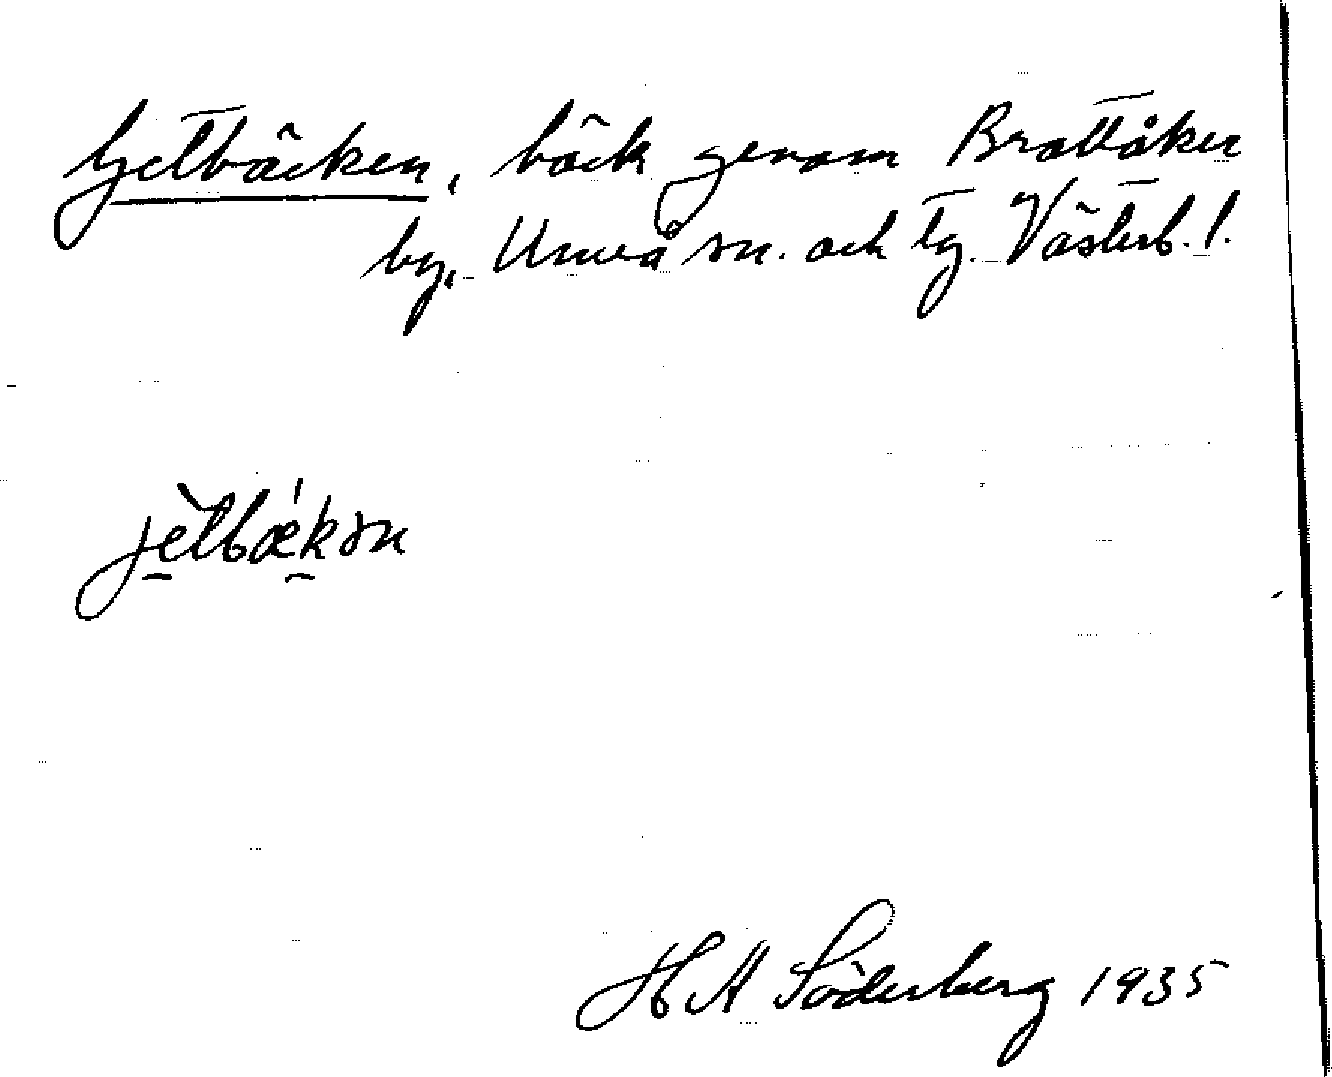 Getbäcken, bäck genom Brattåker
by, Umeå sn. och tg. Västerb. l.
jètbǽkən
H A Söderberg 1935